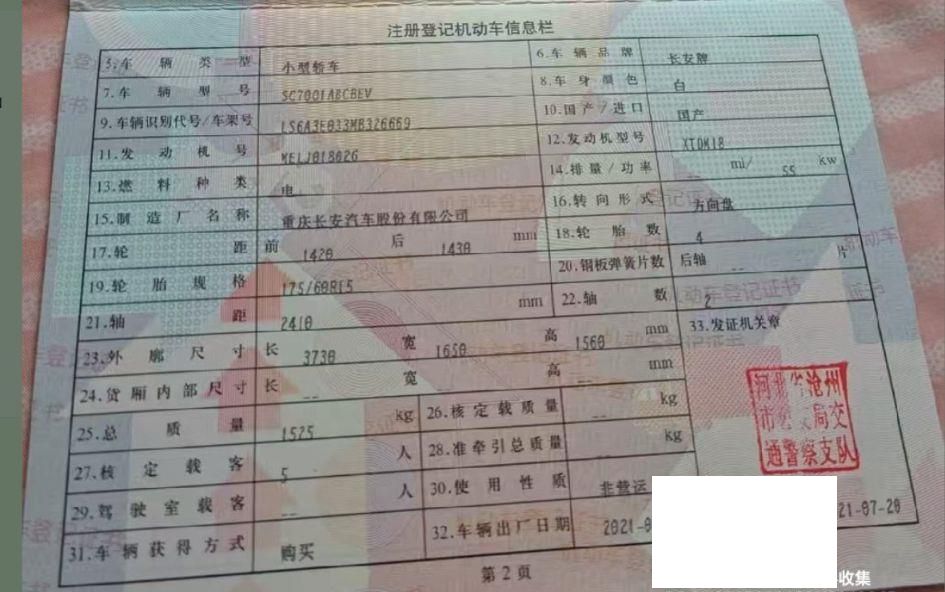 注册登记机动车信息栏
5.车辆类型 小型轿车 6.车辆品牌 长安牌
7.车辆型号 SC7001ABCBEV 8.车身颜色 白
9.车辆识别代号/车架号 LS6A3E033MB326669 10.国产/进口 国产
11.发动机号 MELJ018026 12.发动机型号 XTDM18
13.燃料种类 电 14.排量/功率 -- ml/ 55 kw
15.制造厂名称 重庆长安汽车股份有限公司 16.转向形式 方向盘
17.轮距 前 1420 后 1430 mm 18.轮胎数 4
19.轮胎规格 175/60R15 20.钢板弹簧片数 后轴 -- 片
21.轴距 2410 mm 22.轴数 2
23.外廓尺寸 长 3730 宽 1650 高 1560 mm 33.发证机关章
24.货厢内部尺寸 长 -- 宽 -- 高 -- mm
25.总质量 1525 kg 26.核定载质量 -- kg
27.核定载客 5 人 28.准牵引总质量 -- kg
29.驾驶室载客 -- 人 30.使用性质 非营运
31.车辆获得方式 购买 32.车辆出厂日期 2021-0
河北省沧州
市公安局交
通警察支队
21-07-20
第2页
收集